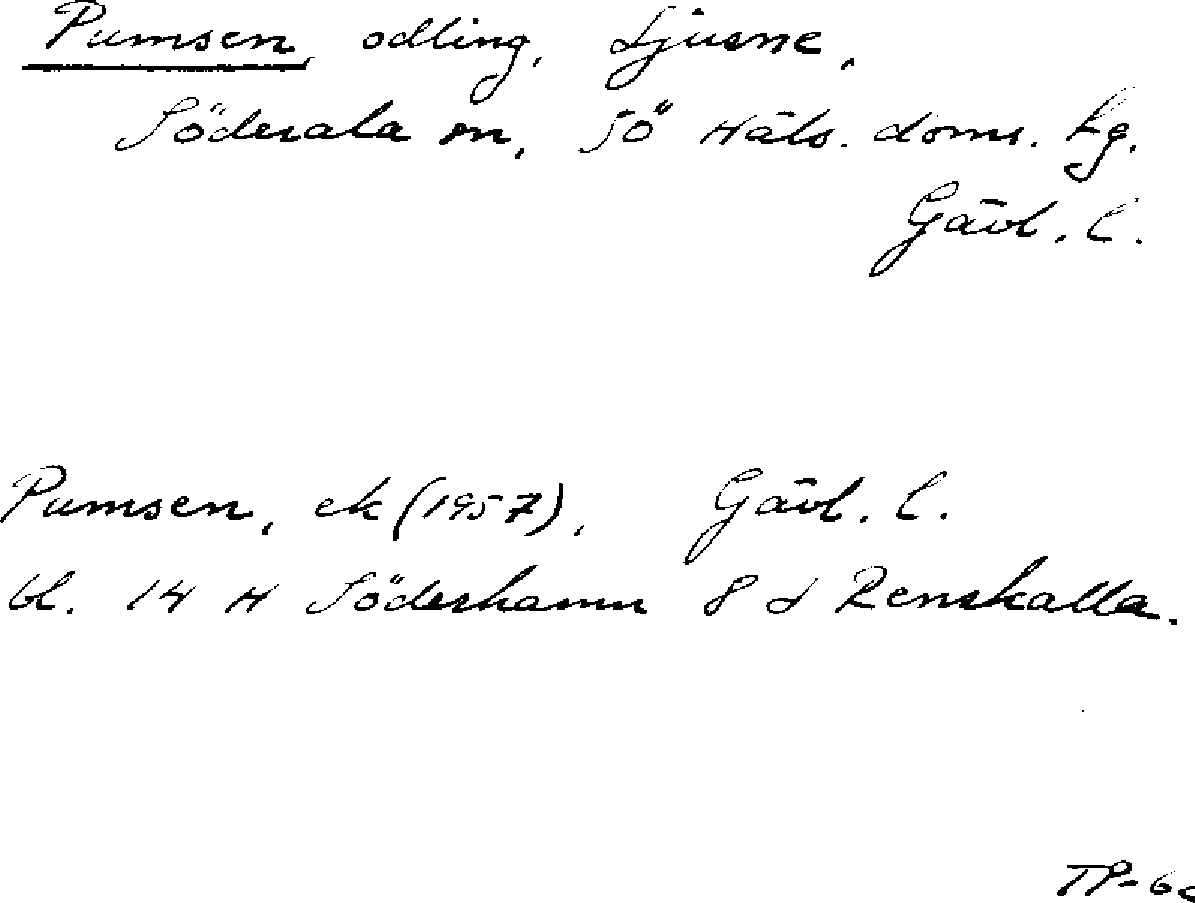 Pumsen, odling, Ljusne,
Söderala sn, Sö Häls. doms. tg.
Gävl. l.
Pumsen, ek (1957), Gävl. l.
bl. 14 H Söderhamn 8 d Renskalla.
TP-60